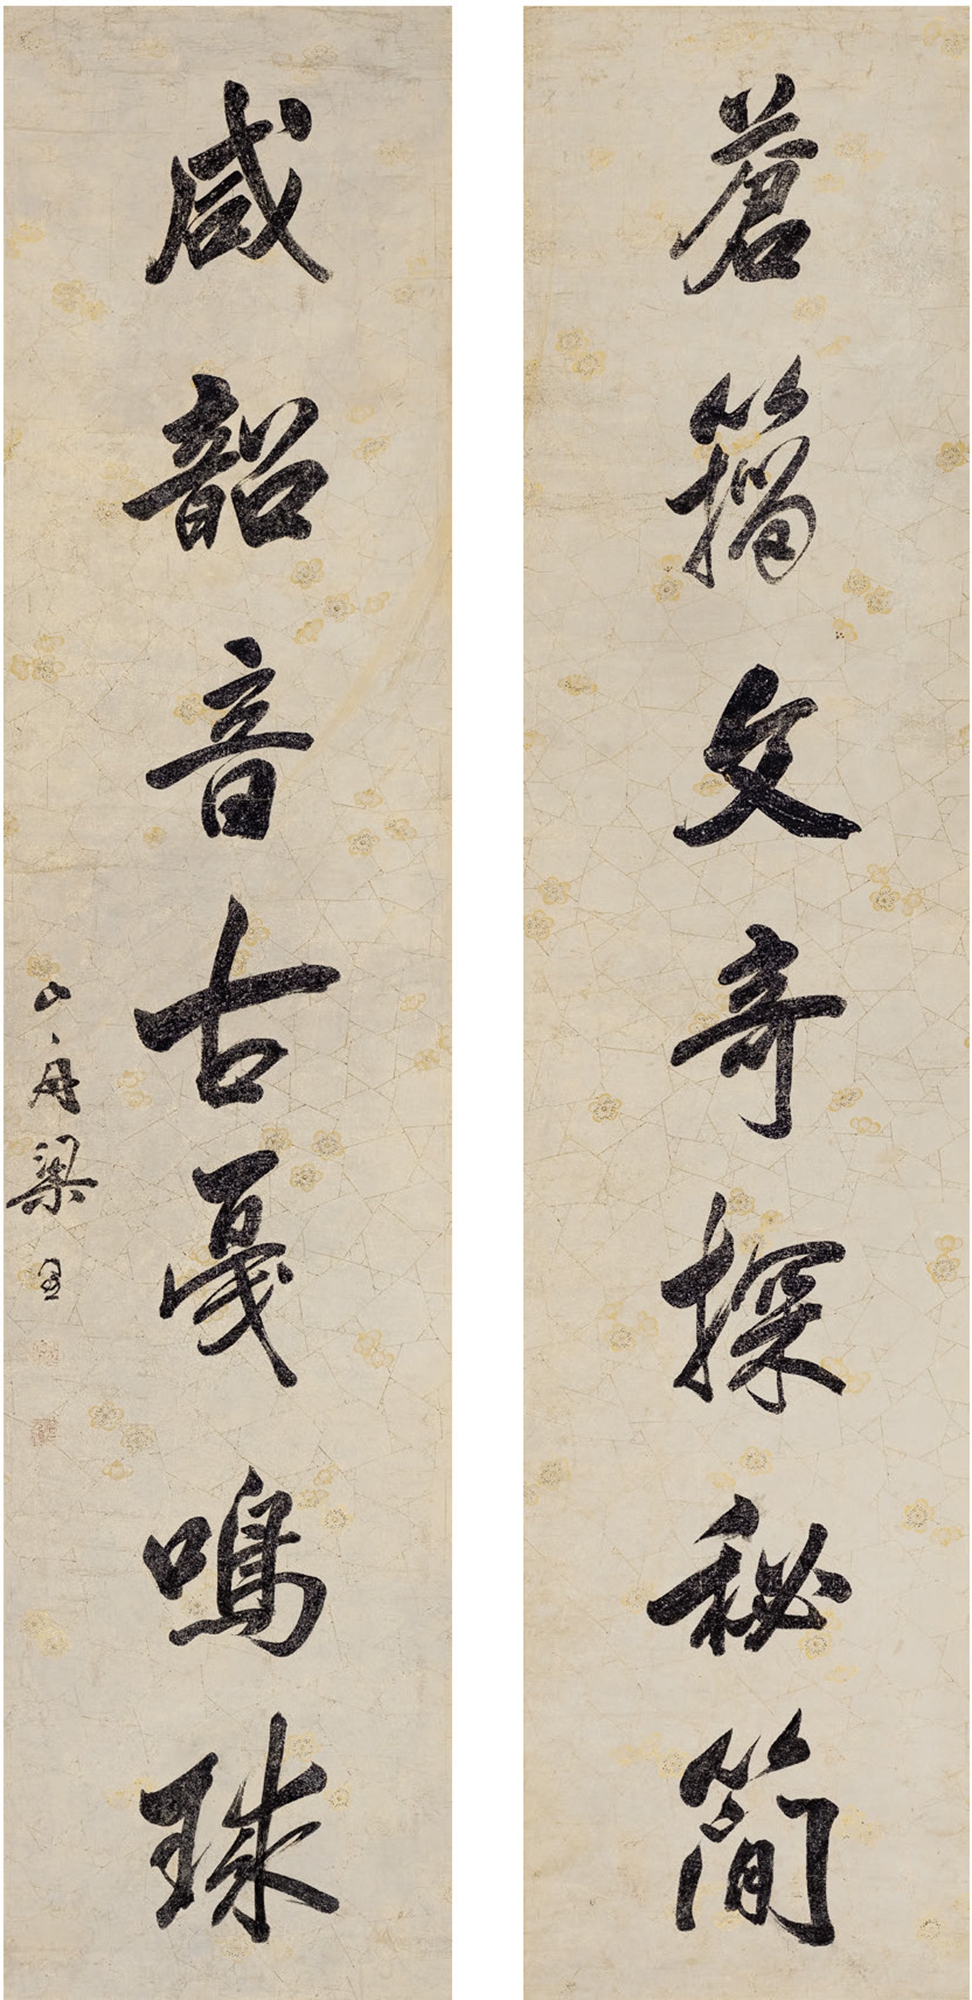 蒼籀文奇探秘簡
咸韶音古戛鳴球
山舟梁同書